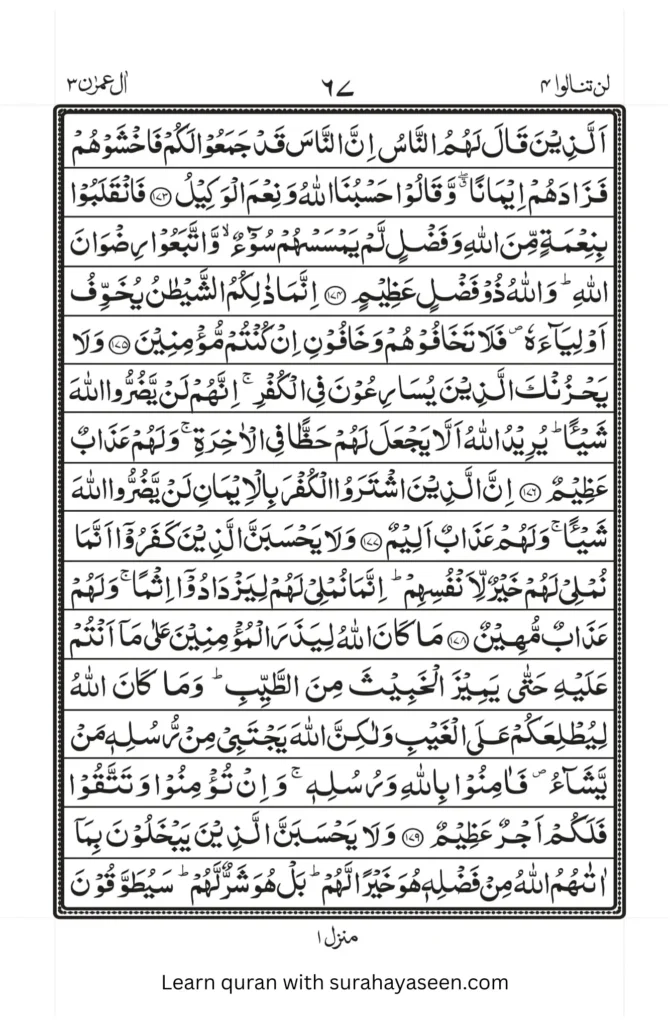 لن تنالوا ۴ ٦٧ اٰل عمرٰن ۳
اَلَّذِيْنَ قَالَ لَهُمُ النَّاسُ اِنَّ النَّاسَ قَدْ جَمَعُوْا لَكُمْ فَاخْشَوْهُمْ
فَزَادَهُمْ اِيْمَانًا ۖۗ وَّقَالُوْا حَسْبُنَا اللهُ وَنِعْمَ الْوَكِيْلُ ﴿۱۷۳﴾ فَانْقَلَبُوْا
بِنِعْمَةٍ مِّنَ اللهِ وَفَضْلٍ لَّمْ يَمْسَسْهُمْ سُوْٓءٌ ۙ وَّاتَّبَعُوْا رِضْوَانَ
اللهِ ؕ وَاللهُ ذُوْ فَضْلٍ عَظِيْمٍ ﴿۱۷۴﴾ اِنَّمَا ذٰلِكُمُ الشَّيْطٰنُ يُخَوِّفُ
اَوْلِيَآءَهٗ ۪ فَلَا تَخَافُوْهُمْ وَخَافُوْنِ اِنْ كُنْتُمْ مُّؤْمِنِيْنَ ﴿۱۷۵﴾ وَلَا
يَحْزُنْكَ الَّذِيْنَ يُسَارِعُوْنَ فِي الْكُفْرِ ۚ اِنَّهُمْ لَنْ يَّضُرُّوا اللهَ
شَيْـًٔا ؕ يُرِيْدُ اللهُ اَلَّا يَجْعَلَ لَهُمْ حَظًّا فِي الْاٰخِرَةِ ۚ وَلَهُمْ عَذَابٌ
عَظِيْمٌ ﴿۱۷۶﴾ اِنَّ الَّذِيْنَ اشْتَرَوُا الْكُفْرَ بِالْاِيْمَانِ لَنْ يَّضُرُّوا اللهَ
شَيْـًٔا ۚ وَلَهُمْ عَذَابٌ اَلِيْمٌ ﴿۱۷۷﴾ وَلَا يَحْسَبَنَّ الَّذِيْنَ كَفَرُوْٓا اَنَّمَا
نُمْلِيْ لَهُمْ خَيْرٌ لِّاَنْفُسِهِمْ ؕ اِنَّمَا نُمْلِيْ لَهُمْ لِيَزْدَادُوْٓا اِثْمًا ۚ وَلَهُمْ
عَذَابٌ مُّهِيْنٌ ﴿۱۷۸﴾ مَا كَانَ اللهُ لِيَذَرَ الْمُؤْمِنِيْنَ عَلٰى مَآ اَنْتُمْ
عَلَيْهِ حَتّٰى يَمِيْزَ الْخَبِيْثَ مِنَ الطَّيِّبِ ؕ وَمَا كَانَ اللهُ
لِيُطْلِعَكُمْ عَلَى الْغَيْبِ وَلٰكِنَّ اللهَ يَجْتَبِيْ مِنْ رُّسُلِهٖ مَنْ
يَّشَآءُ ۪ فَاٰمِنُوْا بِاللهِ وَرُسُلِهٖ ۚ وَاِنْ تُؤْمِنُوْا وَتَتَّقُوْا
فَلَكُمْ اَجْرٌ عَظِيْمٌ ﴿۱۷۹﴾ وَلَا يَحْسَبَنَّ الَّذِيْنَ يَبْخَلُوْنَ بِمَآ
اٰتٰىهُمُ اللهُ مِنْ فَضْلِهٖ هُوَ خَيْرًا لَّهُمْ ؕ بَلْ هُوَ شَرٌّ لَّهُمْ ؕ سَيُطَوَّقُوْنَ
منزل ۱
Learn quran with surahayaseen.com